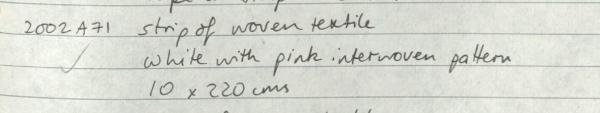 2002A71 strip of woven textile
white with pink interwoven pattern
10 x 220 cms